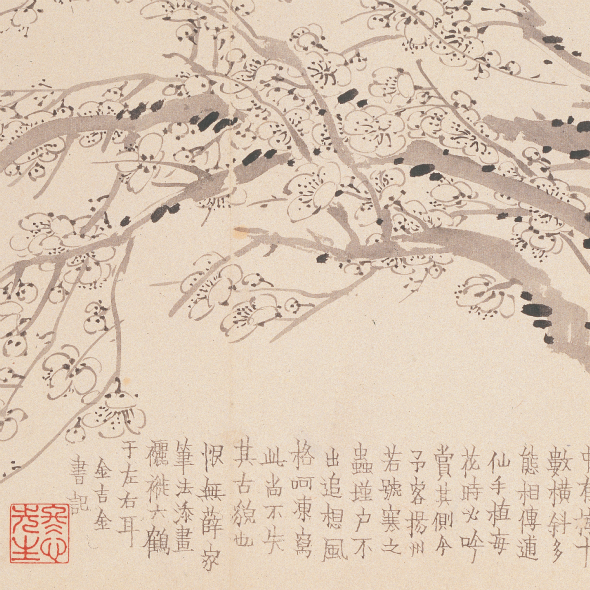 數橫斜多
態相傳逋
仙手植每
花時必吟
賞其側今
予客揚州
若號寒之
蟲墐户不
出追想風
格呵凍寫
此尚不失
其古貌也
恨無薛家
筆法添畫
襹褷六鶴
于左右耳
金吉金
書記
冬心
先生